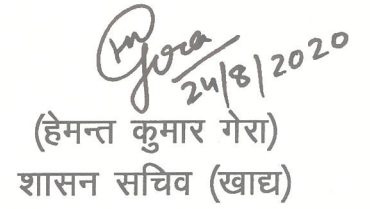 Gera
24/8/2020
(हेमन्त कुमार गेरा)
शासन सचिव (खाद्य)